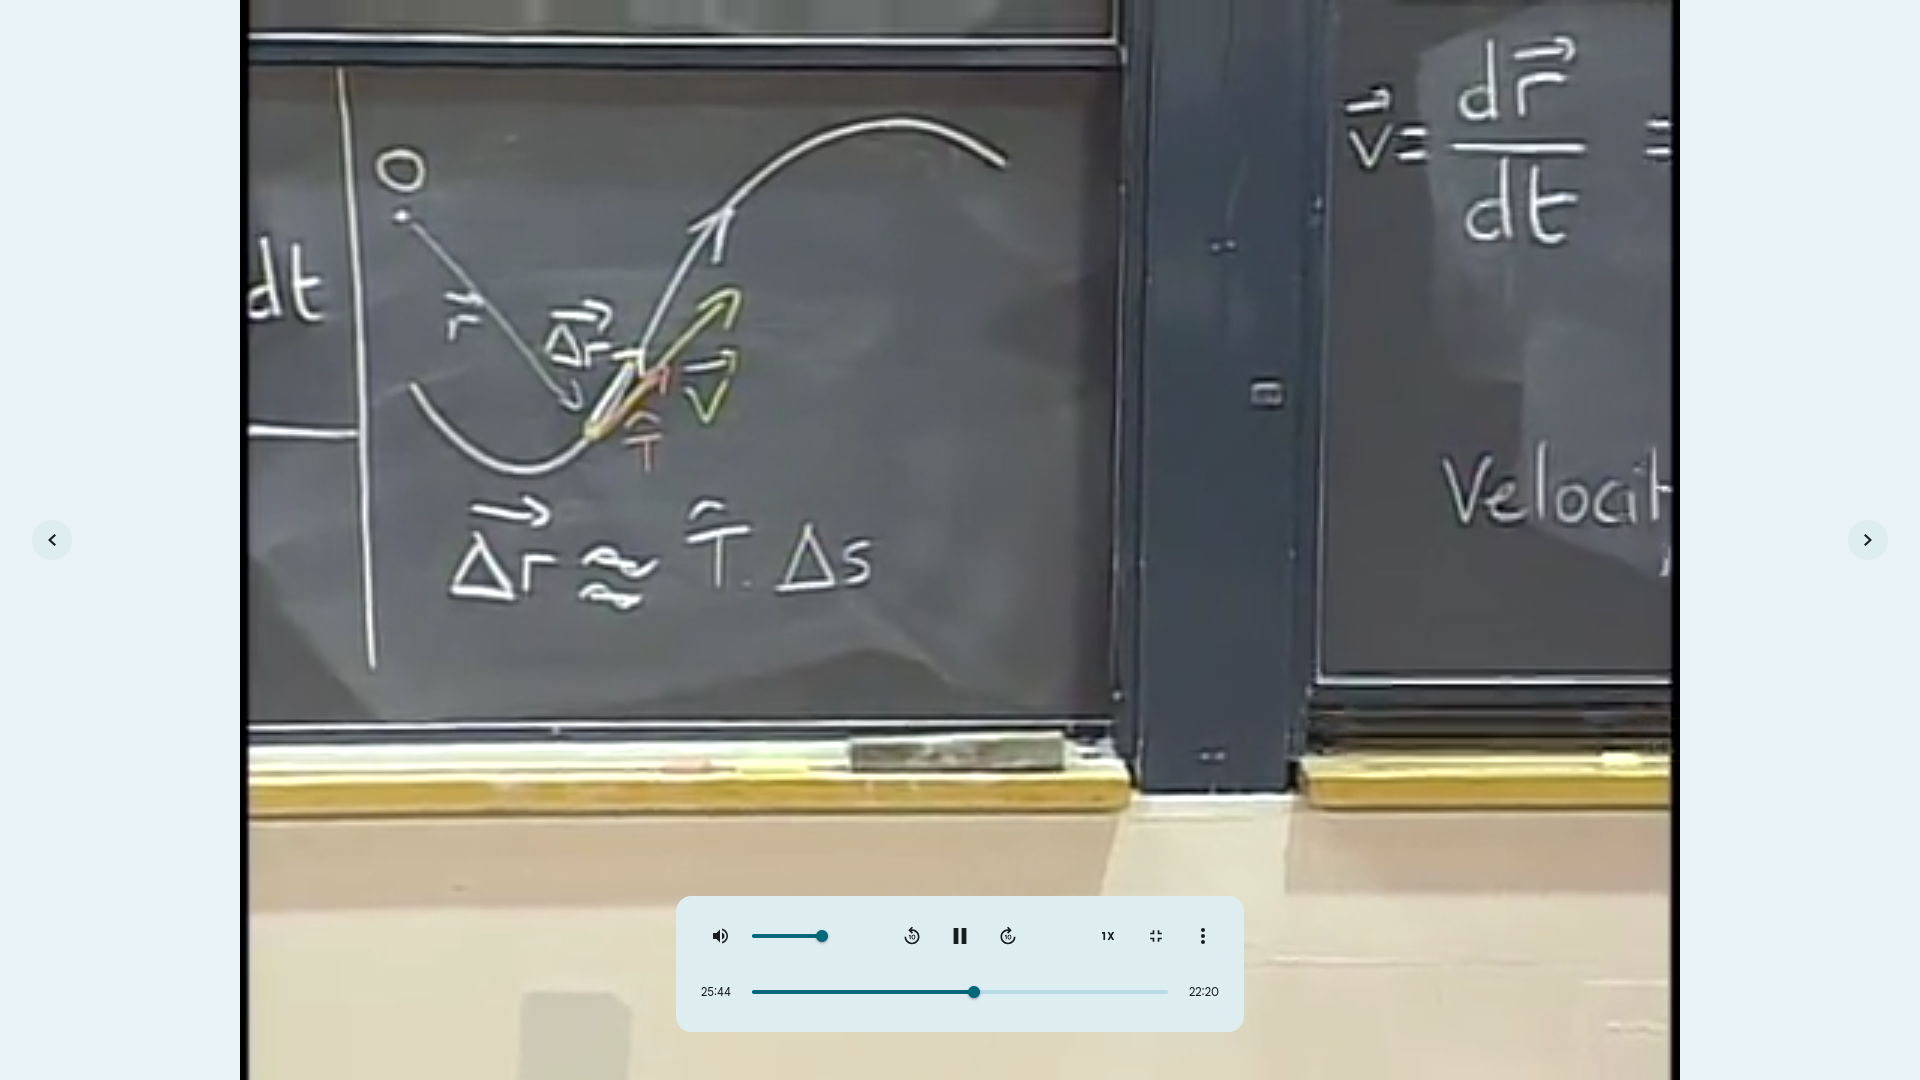 dt
O
r⃗
Δr⃗
v⃗
T̂
Δr⃗ ≈ T̂ Δs
v⃗ = dr⃗/dt =
Velocit
10
10
1X
25:44
22:20